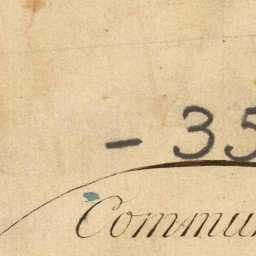 - 35
Commun